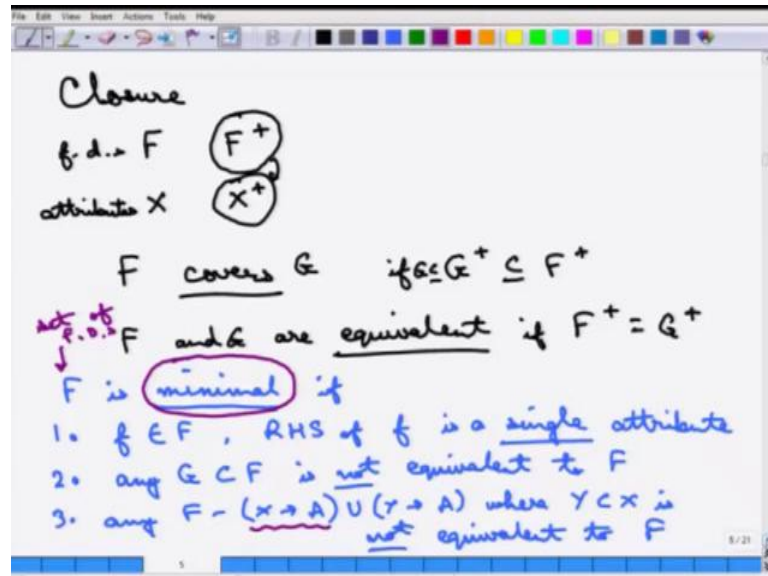 File Edit View Insert Actions Tools Help
Closure
f.d.s F F+
attributes X X+
F covers G if G ⊆ G+ ⊆ F+
set of F.D.s
F and G are equivalent if F+ = G+
F is minimal if
1. f ∈ F, RHS of f is a single attribute
2. any G ⊂ F is not equivalent to F
3. any F - (X → A) ∪ (Y → A) where Y ⊂ X is
not equivalent to F
5
5/21